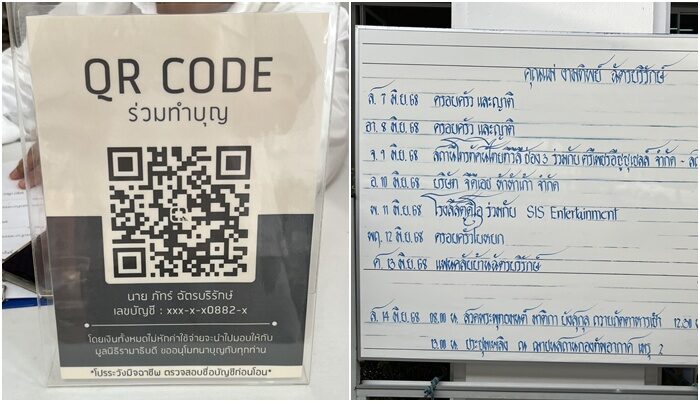 QR CODE
ร่วมทำบุญ
นาย ภัทร์ ฉัตรบริรักษ์
เลขบัญชี : xxx-x-x0882-x
โดยเงินทั้งหมดไม่หักค่าใช้จ่ายจะนำไปมอบให้กับ
มูลนิธิรามาธิบดี ขออนุโมทนาบุญกับทุกท่าน
*โปรระวังมิจฉาชีพ ตรวจสอบชื่อบัญชีก่อนโอน*
คุณแม่ งามทิพย์ ฉัตรบริรักษ์
ส. 7 มิ.ย. 68 ครอบครัว และญาติ
อา. 8 มิ.ย. 68 ครอบครัว และญาติ
จ. 9 มิ.ย. 68 สถานีโทรทัศน์ไทยทีวีสี ช่อง 3 ร่วมกับ จำกัด -
อ. 10 มิ.ย. 68 บริษัท จำกัด
พ. 11 มิ.ย. 68 ร่วมกับ SIS Entertainment
พฤ. 12 มิ.ย. 68 ครอบครัวโบตยก
ศ. 13 มิ.ย. 68 แฟนคลับบ้านฉัตรบริรักษ์
ส. 14 มิ.ย. 68 08.00 น. สวดพระพุทธมนต์ มาติกา บังสุกุล ถวายภัตตาหารเช้า
13.00 น. ประชุมเพลิง ณ ฌาปนสถานกองทัพอากาศ เมรุ 2